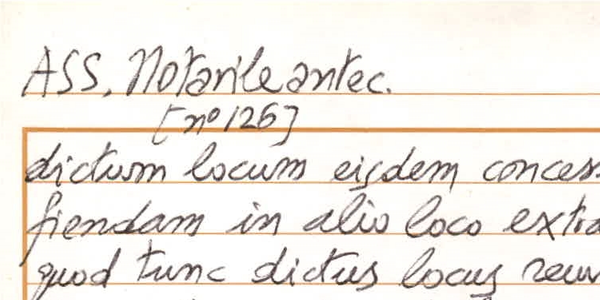 ASS, Notarile antec.
[nº 126]
dictum locum eisdem concess
fiendam in alio loco extra
quod tunc dictus locus